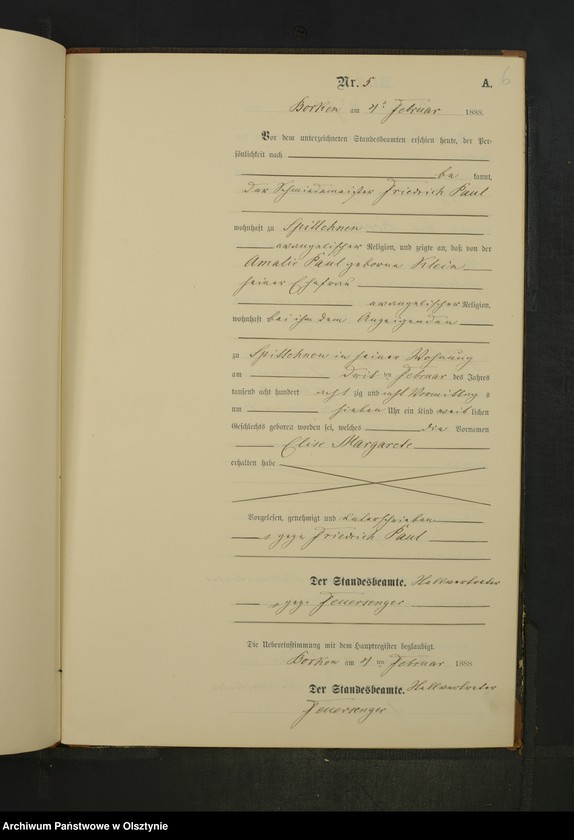 6
Nr. 5 A.
Borken am 4t Februar 1888.
Vor dem unterzeichneten Standesbeamten erschien heute, der Per-
sönlichkeit nach
be kannt,
der Schmiedemeister Friedrich Paul
wohnhaft zu Spittehnen
evangelischer Religion, und zeigte an, daß von der
Amalie Paul geborne Klein
seiner Ehefrau
evangelischer Religion,
wohnhaft bei ihm dem Anzeigenden
zu Spittehnen in seiner Wohnung
am drit ten Februar des Jahres
tausend acht hundert acht zig und acht Vormittag s
um sieben Uhr ein Kind weib lichen
Geschlechts geboren worden sei, welches die Vornamen
Elise Margarete
erhalten habe
Vorgelesen, genehmigt und unterschrieben
gez. Friedrich Paul
Der Standesbeamte. Stellvertreter
gez. Feuersenger
Die Uebereinstimmung mit dem Hauptregister beglaubigt.
Borken am 4 ten Februar 1888.
Der Standesbeamte. Stellvertreter
Feuersenger
Archiwum Państwowe w Olsztynie